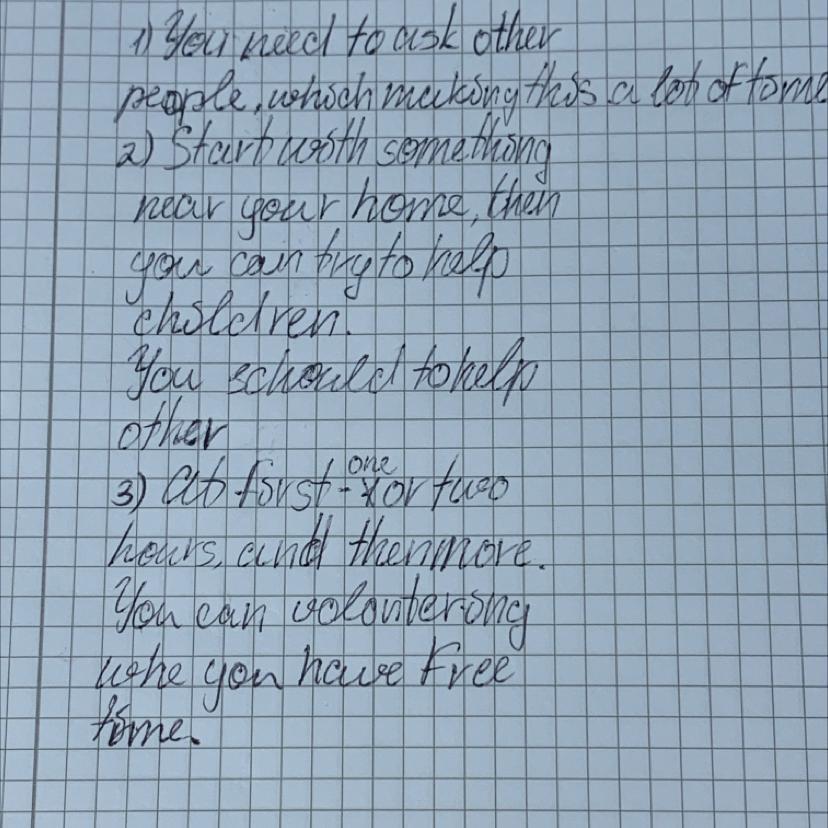 1) You need to ask other
people, which making this a lot of time
2) Start with something
near your home, then
you can try to help
children.
You schould to help
other
3) at first - one or two
hours, and then more.
You can volouitering
whe you have Free
time.